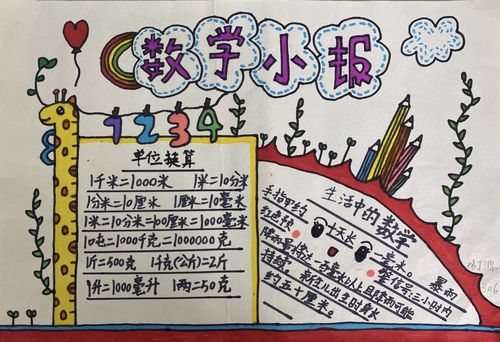 数学小报
1234
单位换算
1千米=1000米 1米=10分米
1分米=10厘米 1厘米=10毫米
1米=10分米=100厘米=1000毫米
10吨=1000千克=1000000克
1斤=500克 1千克(公斤)=2斤
1升=1000毫升 1两=50克
生活中的数学
手指甲约十天长一毫米。 暴雨
红色预警信号:三小时内
降雨量将达一百毫米以上且降雨可能
持续。新生儿出生时身长
约五十厘米。